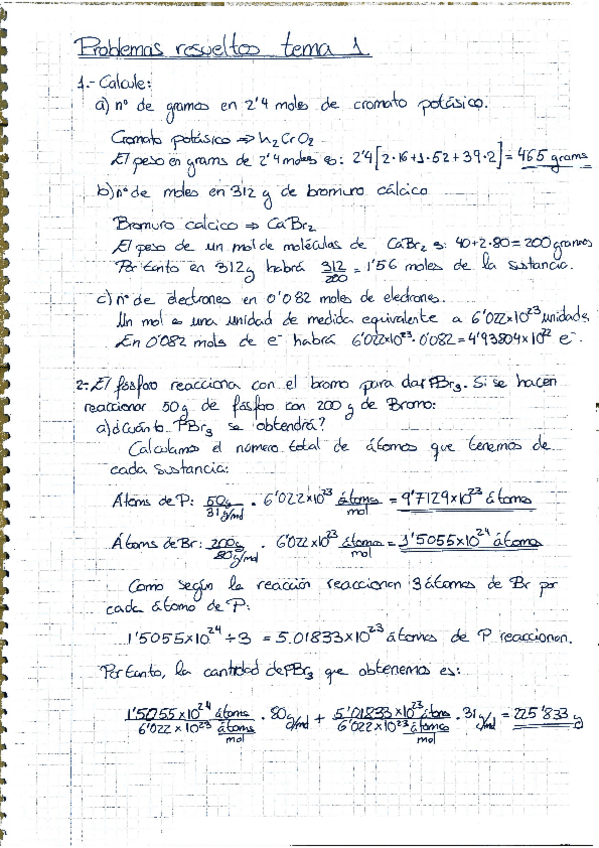 Problemas resueltos tema 1
1.- Calcule:
a) nº de gramos en 2'4 moles de cromato potásico.
Cromato potásico ⇒ K₂CrO₂
El peso en grams de 2'4 moles es: 2'4[2·16+1·52+39·2] = 465 grams
b) nº de moles en 312 g de bromuro cálcico
Bromuro calcico ⇒ CaBr₂
El peso de un mol de moléculas de CaBr₂ es: 40+2·80=200 gramos
Por tanto en 312g habrá 312/200 = 1'56 moles de la sustancia.
c) nº de electrones en 0'082 moles de eledrones.
Un mol es una unidad de medida equivalente a 6'022×10²³ unidades
En 0'082 mols de e⁻ habrá 6'022×10²³·0'082=4'93804×10²² e⁻.
2.- El fósforo reacciona con el bromo para dar PBr₃. Si se hacen
reaccionar 50g de fósfo con 200 g de Bromo:
a) ¿Cuánto PBr₃ se obtendrá?
Calculamos el número total de átomos que tenemos de
cada sustancia:
Átoms de P: 50g/31 g/mol · 6'022×10²³ átomos/mol = 9'7129×10²³ átomo
Átoms de Br: 200g/80 g/mol · 6'022×10²³ átomos/mol = 1'5055×10²⁴ átomo
Como según la reacción reaccionan 3 átomos de Br por
cada átomo de P:
1'5055×10²⁴ ÷ 3 = 5.01833×10²³ átomos de P reaccionan.
Por tanto, la cantidad de PBr₃ que obtenemos es:
1'5055×10²⁴ átoms/6'022×10²³ átomos/mol · 80 g/mol + 5'01833×10²³ átom/6'022×10²³ átomos/mol · 31 g/mol = 225'833 g